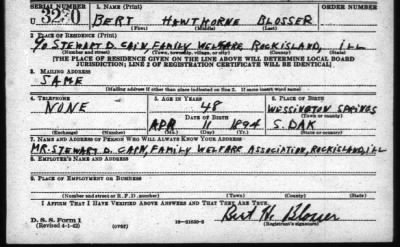 SERIAL NUMBER 1. NAME (Print) ORDER NUMBER
U 3220 BERT HAWTHORNE BLOSSER
(First) (Middle) (Last)
2. PLACE OF RESIDENCE (Print)
c/o STEWART D. CAIN, FAMILY WELFARE ROCK ISLAND, ILL
(Number and street) (Town, township, village, or city) (County) (State)
[THE PLACE OF RESIDENCE GIVEN ON THE LINE ABOVE WILL DETERMINE LOCAL BOARD
JURISDICTION; LINE 2 OF REGISTRATION CERTIFICATE WILL BE IDENTICAL]
3. MAILING ADDRESS
SAME
[Mailing address if other than place indicated on line 2. If same insert word same]
4. TELEPHONE 5. AGE IN YEARS 6. PLACE OF BIRTH
NONE 48 WESSINGTON SPRINGS
DATE OF BIRTH (Town or county)
APR 11 1894 S. DAK
(Exchange) (Number) (Mo.) (Day) (Yr.) (State or country)
7. NAME AND ADDRESS OF PERSON WHO WILL ALWAYS KNOW YOUR ADDRESS
MR. STEWART D. CAIN, FAMILY WELFARE ASSOCIATION, ROCK ISLAND, ILL
8. EMPLOYER'S NAME AND ADDRESS
9. PLACE OF EMPLOYMENT OR BUSINESS
(Number and street or R. F. D. number) (Town) (County) (State)
I AFFIRM THAT I HAVE VERIFIED ABOVE ANSWERS AND THAT THEY ARE TRUE.
D. S. S. Form 1 Bert H. Blosser
(Revised 4-1-42) (over) 16-21630-2 (Registrant's signature)